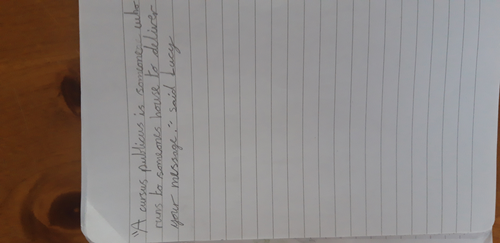 "A cursus publicus is someone who
runs to someones house to deliver
your message." said Lucy